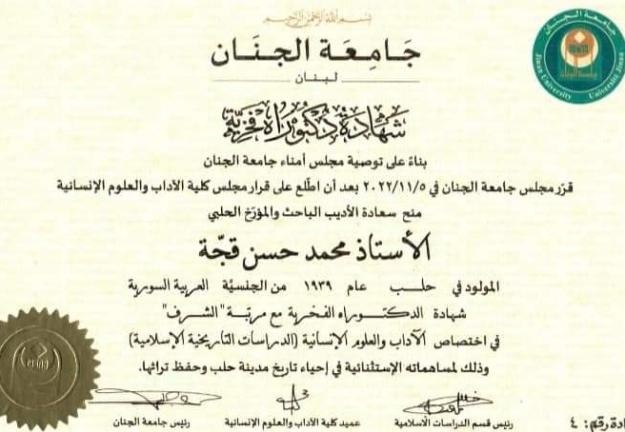 بسم الله الرحمن الرحيم
جَامِعَة الجنَان
لبنان
جامعة الجنان
Jinan University Université Jinan
شهادة دكتوراه فخرية
بناءً على توصية مجلس أمناء جامعة الجنان
قرّر مجلس جامعة الجنان في ٢٠٢٢/١١/٥ بعد أن اطّلع على قرار مجلس كلية الآداب والعلوم الإنسانية
منح سعادة الأديب الباحث والمؤرّخ الحلبي
الأستاذ محمد حسن قجّة
المولود في حلب عام ١٩٣٩ من الجنسيّة العربية السورية
شهادة الدكتوراه الفخرية مع مرتبة "الشرف"
في اختصاص الآداب والعلوم الإنسانية (الدراسات التاريخية الإسلامية)
وذلك لمساهماته الإستثنائية في إحياء تاريخ مدينة حلب وحفظ تراثها.
رئيس قسم الدراسات الاسلامية
عميد كلية الآداب والعلوم الإنسانية
رئيس جامعة الجنان
ادة رقم: ٤